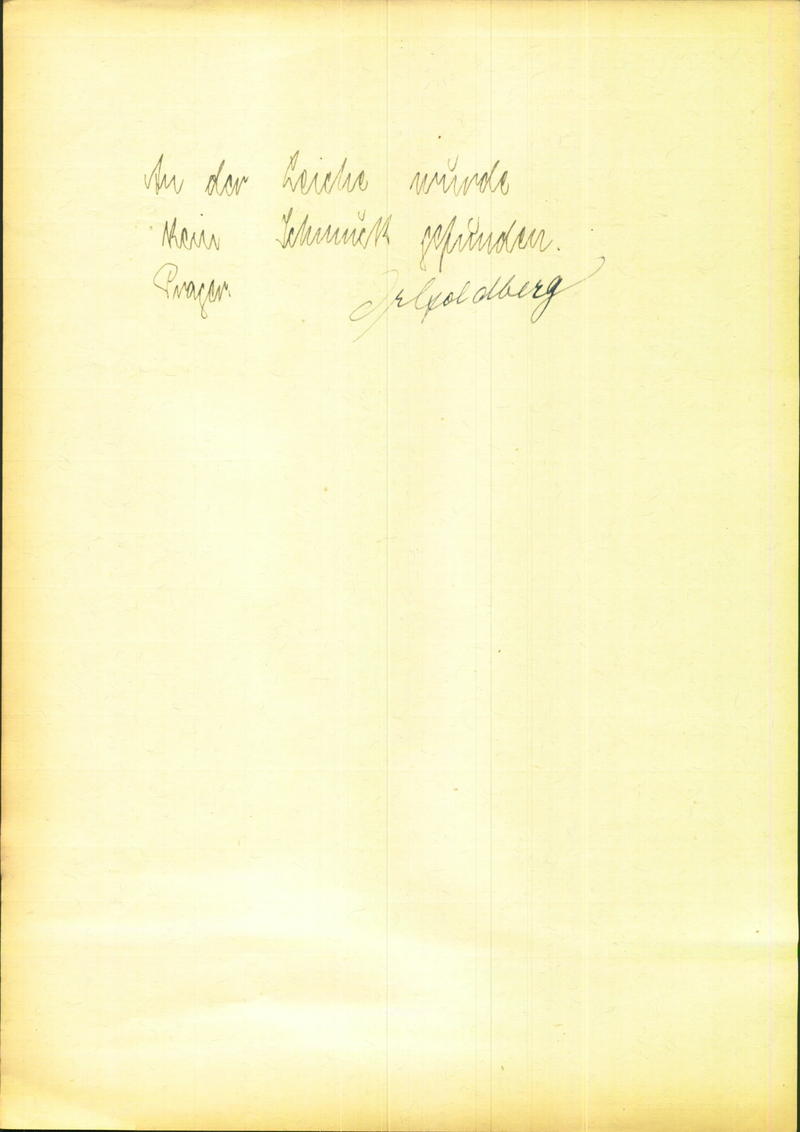 An der Leiche wurde
kein Schmuck gefunden.
Prager. Dr Goldberg